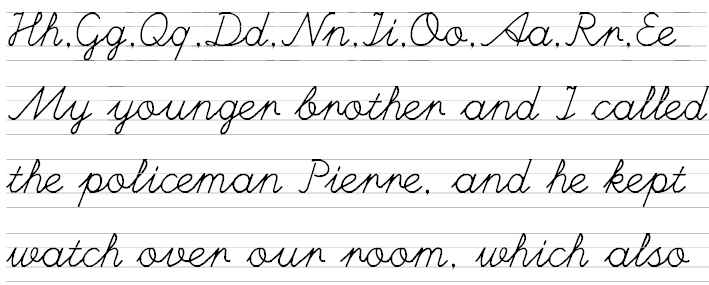 Hh, Gg, Qq, Dd, Nn, Ii, Oo, Aa, Rr, Ee
My younger brother and I called
the policeman Pierre, and he kept
watch over our room, which also